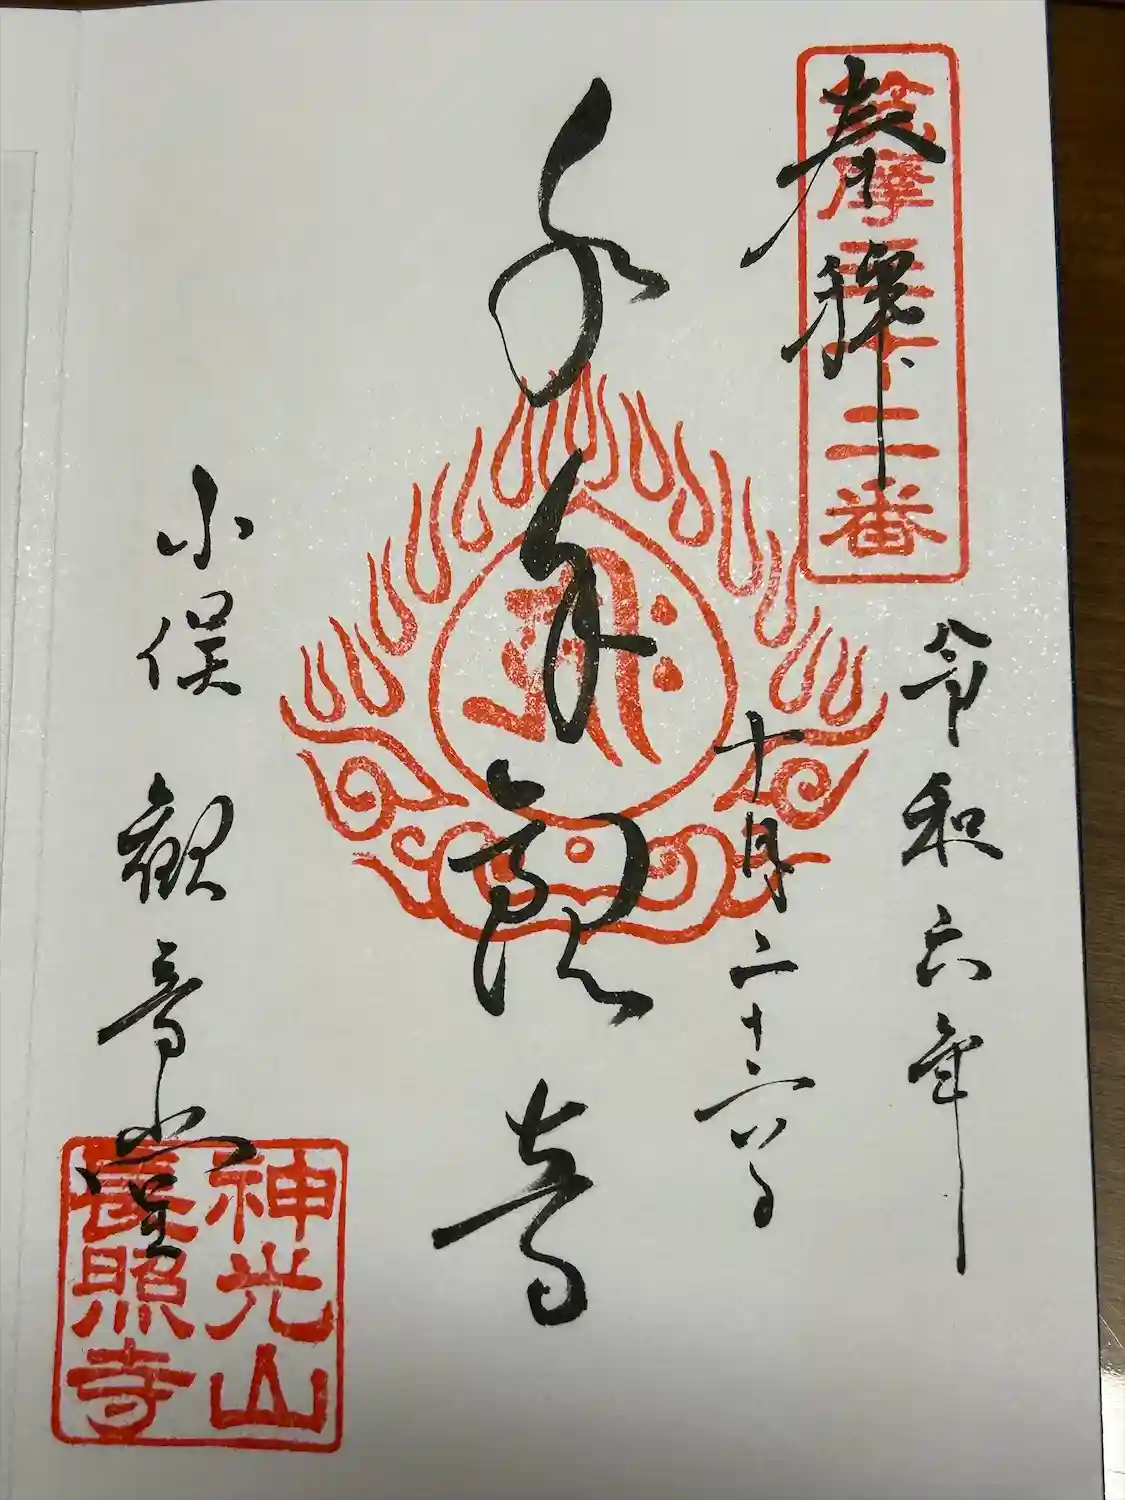 筑摩三十二番
奉拝
令和六年
十月二十六日
千手観音
小俣 観音堂
神光山
長照寺